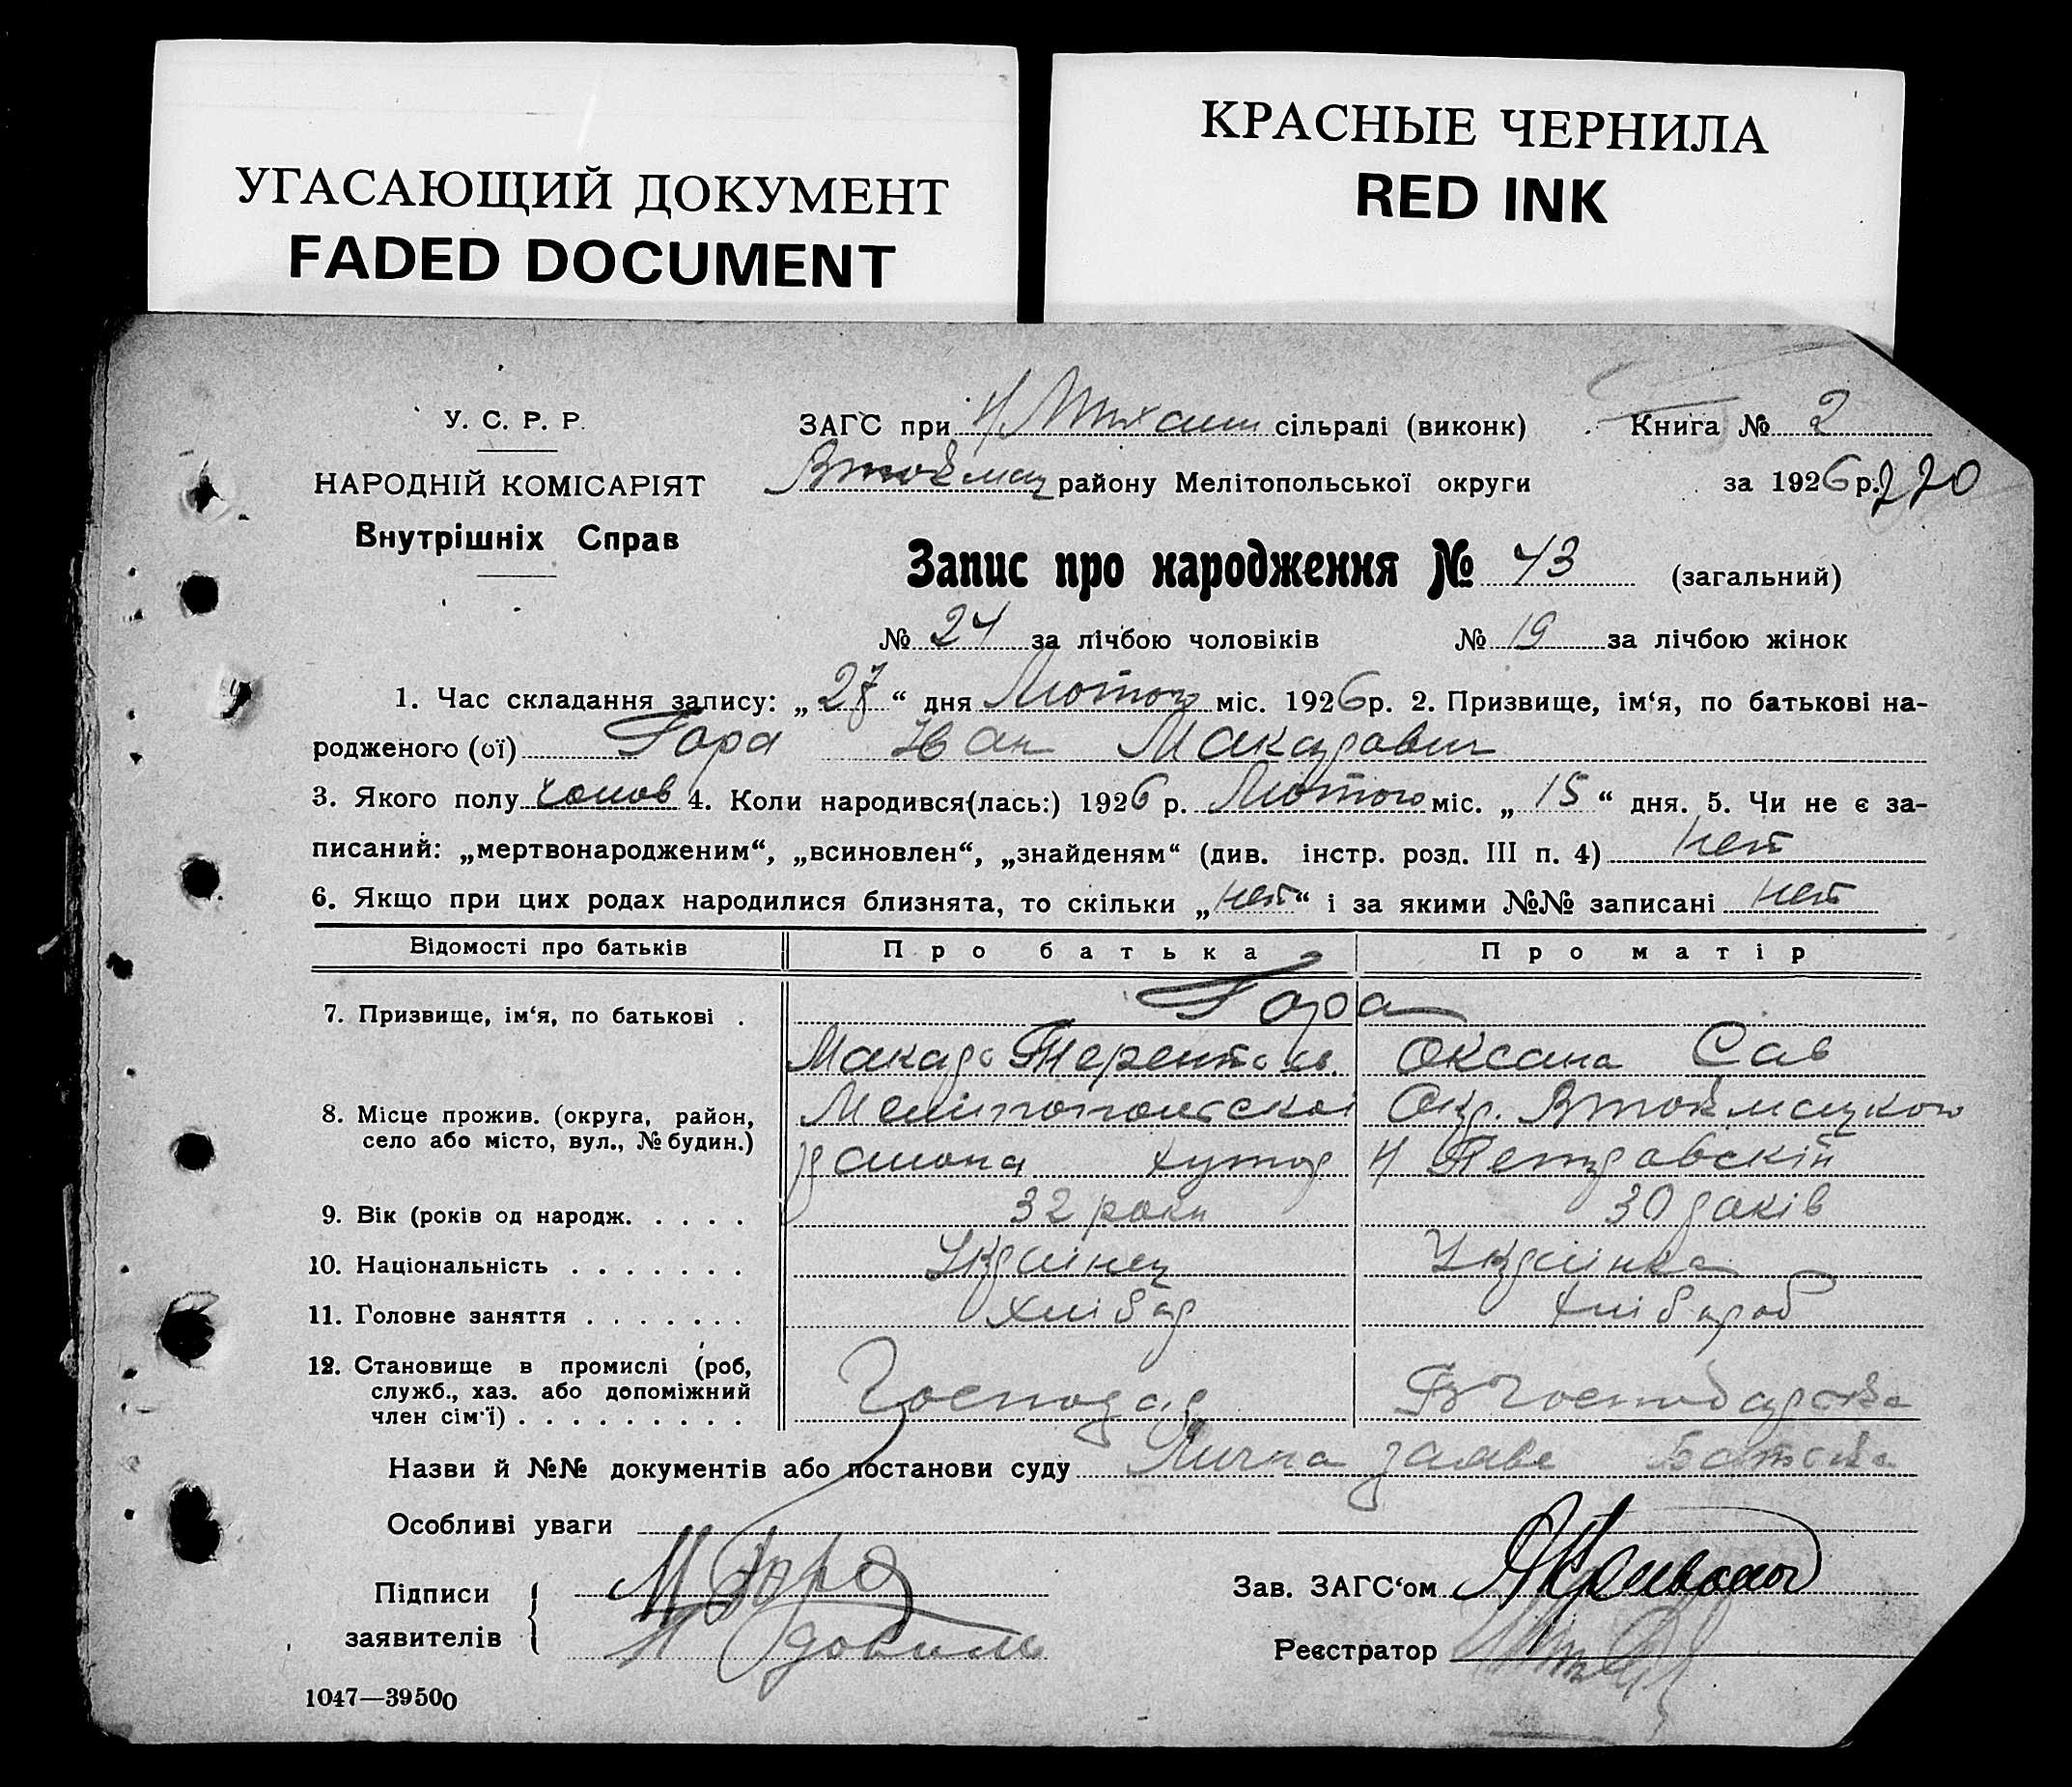 УГАСАЮЩИЙ ДОКУМЕНТ
FADED DOCUMENT
КРАСНЫЕ ЧЕРНИЛА
RED INK
У. С. Р. Р.
НАРОДНІЙ КОМІСАРІЯТ
Внутрішніх Справ
ЗАГС при Н/ сільраді (виконк)
Книга № 2
Втокмац району Мелітопольської округи
за 1926 р. 220
Запис про народження № 43 (загальний)
№ 24 за лічбою чоловіків № 19 за лічбою жінок
1. Час складання запису: „27“ дня Лютого міс. 1926 р. 2. Призвище, ім‘я, по батькові на-
родженого (ої) Гора Іван Макарович
3. Якого полу чолов 4. Коли народився(лась:) 1926 р. Лютого міс. „15“ дня. 5. Чи не є за-
писаний: „мертвонародженим“, „всиновлен“, „знайденям“ (див. інстр. розд. III п. 4) нет
6. Якщо при цих родах народилися близнята, то скільки „нет“ і за якими №№ записані нет
Відомості про батьків Про батька Про матір
7. Призвище, ім‘я, по батькові . Гора
Макар Терентов. Оксана Сав
8. Місце прожив. (округа, район, Мелітопольскоі Окр. Втокмацкого
село або місто, вул., № будин.)
района хутор Н Петровскій
9. Вік (років од народж. . . . . 32 роки 30 років
10. Національність . . . . . . . Українец Українка
11. Головне заняття . . . . . . . хлібор хлібороб
12. Становище в промислі (роб,
служб., хаз. або допоміжний Господар В господарства
член сім‘ї) . . . . . . . . .
Назви й №№ документів або постанови суду Лична заява Батька
Особливі уваги
Підписи
заявителів
М Гора
Зав. ЗАГС‘ом
Реєстратор
1047—39500